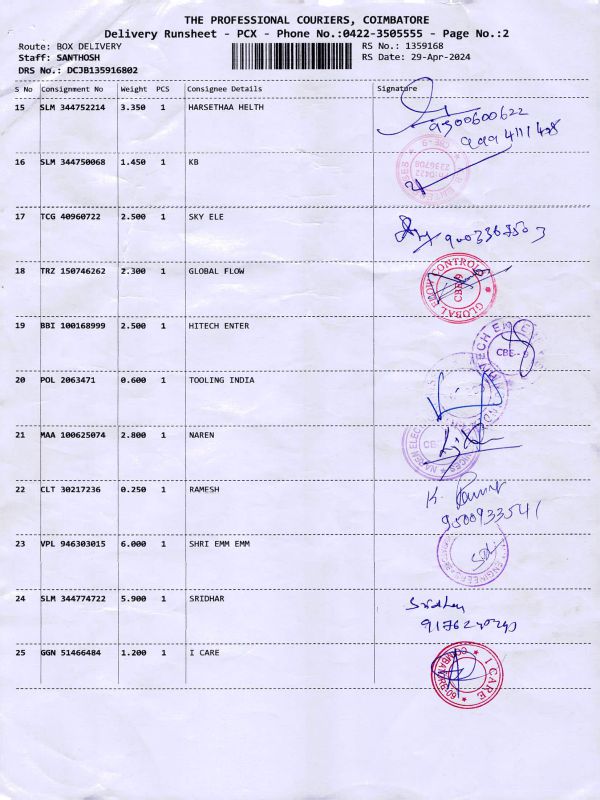 THE PROFESSIONAL COURIERS, COIMBATORE
Delivery Runsheet - PCX - Phone No.:0422-3505555 - Page No.:2
Route: BOX DELIVERY RS No.: 1359168
Staff: SANTHOSH RS Date: 29-Apr-2024
DRS No.: DCJB135916802
S No Consignment No Weight PCS Consignee Details Signature
15 SLM 344752214 3.350 1 HARSETHAA HELTH
9500600622
9994111428
16 SLM 344750068 1.450 1 KB
CBE-9
17 TCG 40960722 2.500 1 SKY ELE
18 TRZ 150746262 2.300 1 GLOBAL FLOW
GLOBAL FLOW CONTROLS
CBE-9
19 BBI 100168999 2.500 1 HITECH ENTER
CBE-9
20 POL 2063471 0.600 1 TOOLING INDIA
21 MAA 100625074 2.800 1 NAREN
22 CLT 30217236 0.250 1 RAMESH
K. Kumar
9500933541
23 VPL 946303015 6.000 1 SHRI EMM EMM
24 SLM 344774722 5.900 1 SRIDHAR
Sridhar
25 GGN 51466484 1.200 1 I CARE
I CARE